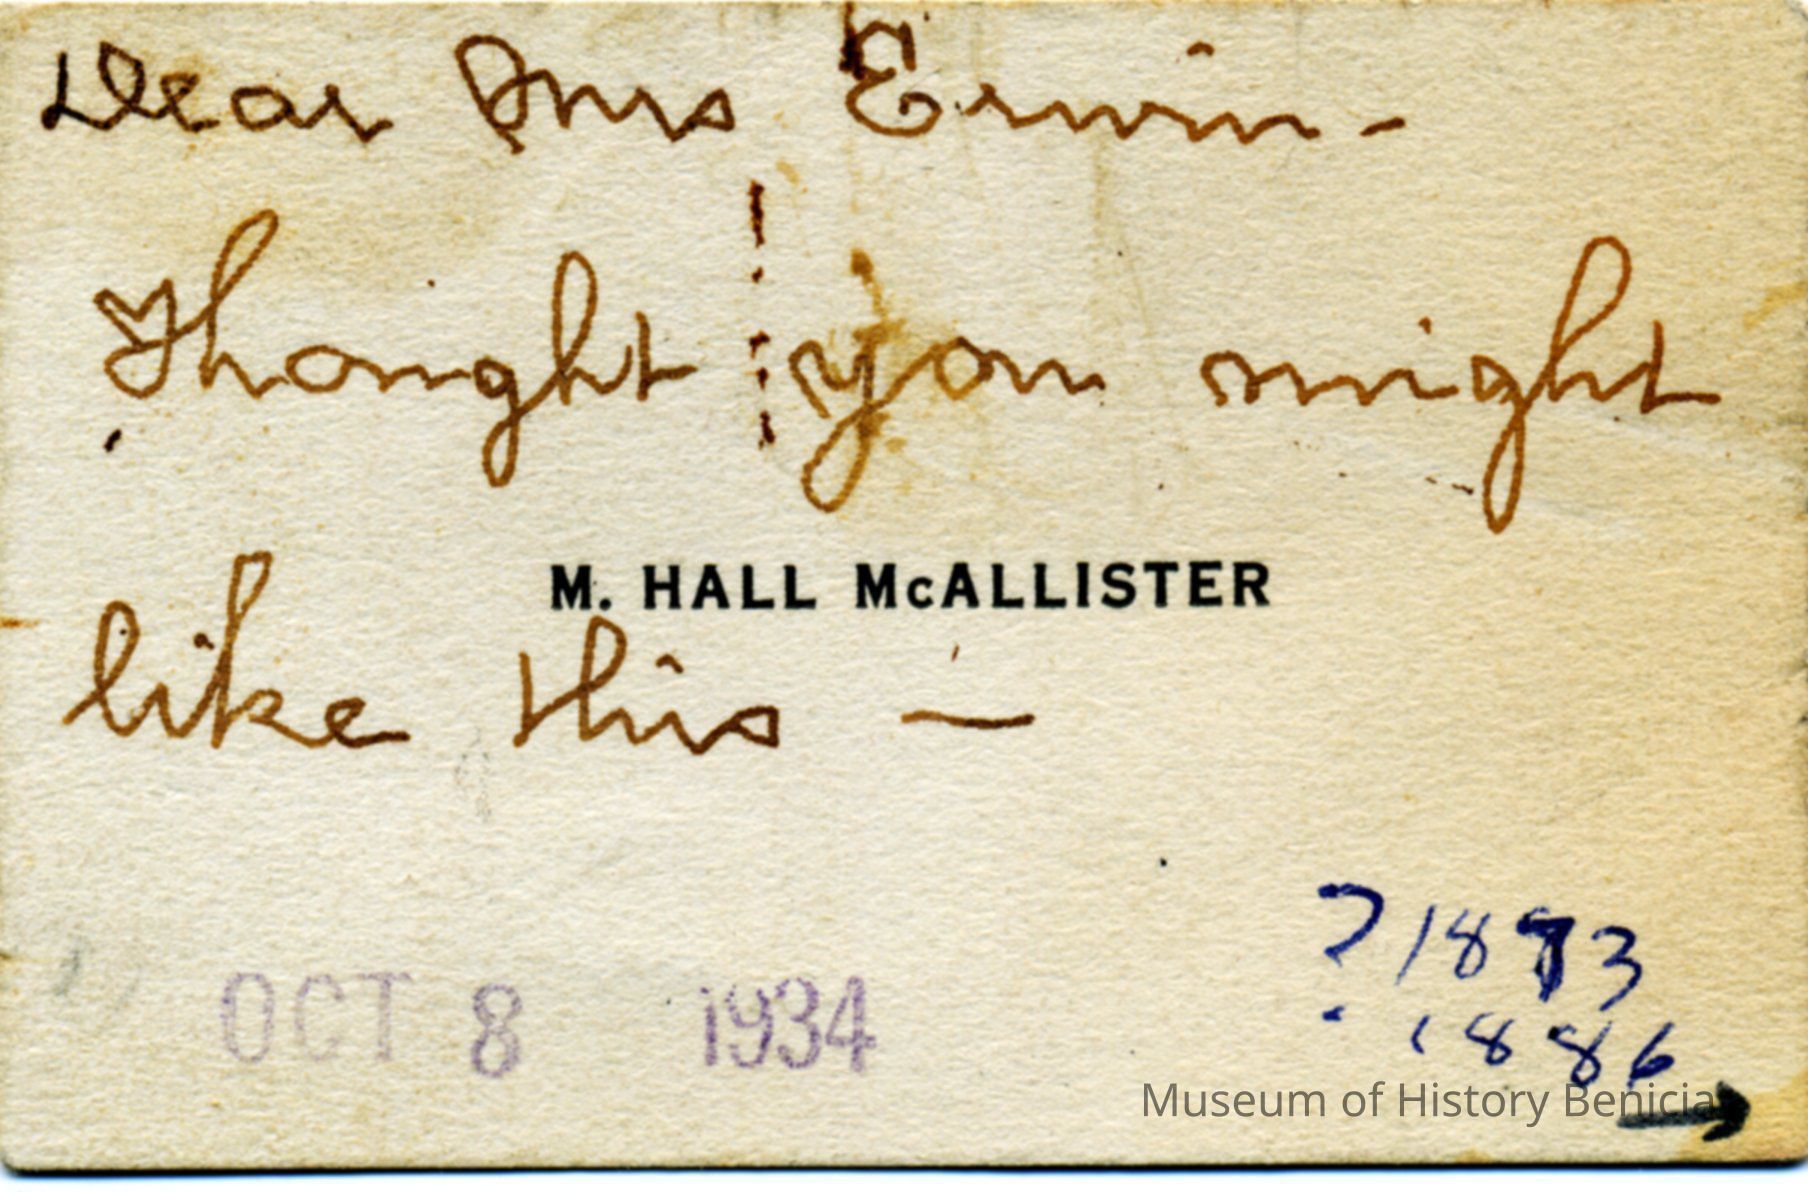 Dear Mrs Erwin-
Thought you might
M. HALL McALLISTER
like this —
OCT 8 1934
? 1873
1886
Museum of History Benicia